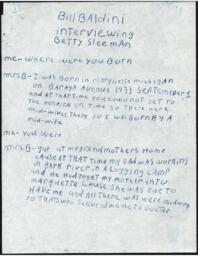 Bill Baldini
interviewing
Betty Sleeman
me- where were you Born
mrs B- I was Born in marquette michigan
on Baraga Avenue 1933 September 1
and at that time you could not get to
the hospital on time so there were
mid-wives there so I was Born By A
mid-wife
me- you were
mrs B- yup at my grandmothers Home
cause at that time my dad was working
in a logging camp
and he had to get my mother into
marquette cause she was due to
have me and all there was were midwives
so that's who delivered me not a Doctor